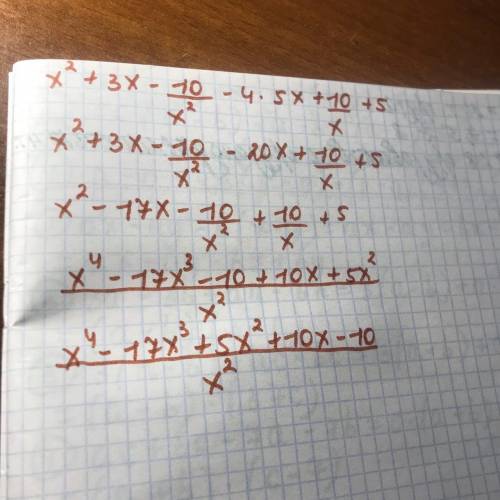 x² + 3x - 10/x² - 4 · 5x + 10/x + 5
x² + 3x - 10/x² - 20x + 10/x + 5
x² - 17x - 10/x² + 10/x + 5
(x⁴ - 17x³ - 10 + 10x + 5x²)/x²
(x⁴ - 17x³ + 5x² + 10x - 10)/x²